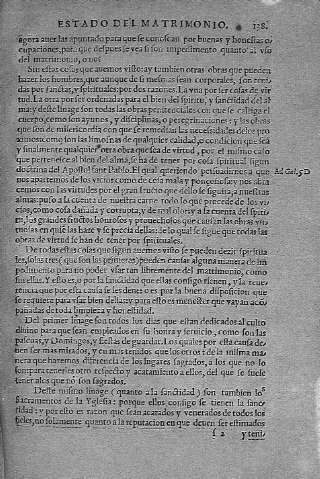 ESTADO DEL MATRIMONIO. 128.
agora auer las apuntado para que se conozcan por buenas y honestas o-
cupaciones, por que despues se vea si son impedimento quanto al vso
del matrimonio, o no.
Sin estas cosas que auemos visto: ay tambien otras obras que pueden
hazer los hombres, que aunque de si mesmas sean corporales, son teni-
das por sanctas, y spirituales: por dos razones. La vna por ser cosas de vir-
tud. La otra por ser ordenadas para el bien del spiritu, y sanctidad del al
ma: y deste linage son todas las obras penitenciales con que se castiga el
cuerpo, como son ayunos, y disciplinas, o peregrinaciones: y las obras
que son de misericordia con que se remedian las necesidades del proximo
como son las limosnas de qualquier calidad, o condicion que sea
y finalmente qualquier otra obra que sea de virtud, por el mismo caso
que pertenesce al bien del alma, se ha de tener por cosa spiritual segun
doctrina del Apostol sant Pablo. El qual queriendo persuadirnos a que Ad Gal. 5 D
nos apartemos de los vicios como de cosa mala y ponçoñosa: y nos abra
cemos con las virtudes por el gran fructo que dello se sigue, a nuestras
almas: puso a la cuenta de nuestra carne todo lo que procede de los vi-
cios, como cosa dañada y corrupta, y de mal olor: y a la cuenta del spiri-
tu, los grandes fructos honrosos y prouechosos que causan las obras vir-
tuosas en quien las haze y se precia dellas: de lo qual se sigue que todas las
obras de virtud se han de tener por spirituales.
De todas estas cosas que segun auemos visto se pueden dezir spiritua
les, solas tres (que son las primeras) pueden causar alguna manera de im
pedimento para no poder vsar tan libremente del matrimonio, como
sin ellas. Y esto es, o por la sanctidad que ellas consigo tienen, y la reue-
rencia que por esta causa se les deue: o es por la buena disposicion que
se requiere para vsar bien dellas: y para esto es menester que vayan acom-
pañadas de toda limpieza y honestidad.
Del primer linage son todos los dias que estan dedicados al culto
diuino para que sean empleados en su honra y seruicio, como son las
pascuas, y Domingos, y fiestas de guardar. Los quales por esta causa de-
uen ser mas mirados, y en mas tenidos que los otros: de la misma ma
nera que hazemos differencia de los lugares sagrados, a los que no lo
son para tenerles otro respecto y acatamiento a ellos, del que se suele
tener a los que no son sagrados.
Deste mismo linage (quanto a la sanctidad) son tambien los
Sacramentos de la Yglesia: porque ellos consigo se tienen la sanc-
tidad: y por esto es razon que sean acatados y venerados de todos los
fieles, no solamente quanto a la reputacion en que deuen ser estimados
s 2 y teni-